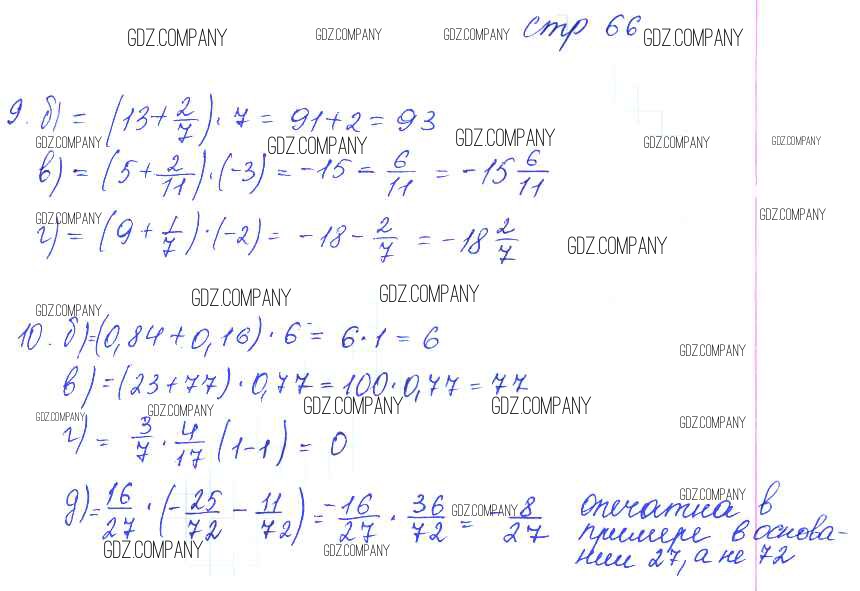 стр 66
GDZ.COMPANY GDZ.COMPANY GDZ.COMPANY GDZ.COMPANY
9. б) = (13 + 2/7) · 7 = 91 + 2 = 93
GDZ.COMPANY GDZ.COMPANY GDZ.COMPANY GDZ.COMPANY GDZ.COMPANY
в) = (5 + 2/11) · (-3) = -15 = 6/11 = -15 6/11
GDZ.COMPANY GDZ.COMPANY
г) = (9 + 1/7) · (-2) = -18 - 2/7 = -18 2/7
GDZ.COMPANY
GDZ.COMPANY GDZ.COMPANY
GDZ.COMPANY
10. б) = (0,84 + 0,16) · 6 = 6 · 1 = 6
GDZ.COMPANY
в) = (23 + 77) · 0,77 = 100 · 0,77 = 77
GDZ.COMPANY GDZ.COMPANY GDZ.COMPANY GDZ.COMPANY GDZ.COMPANY
г) = 3/7 · 4/17 (1 - 1) = 0
GDZ.COMPANY
д) = 16/27 · (-25/72 - 11/72) = -16/27 · 36/72 = -8/27
опечатка в
примере в основа-
нии 27, а не 72
GDZ.COMPANY
GDZ.COMPANY GDZ.COMPANY